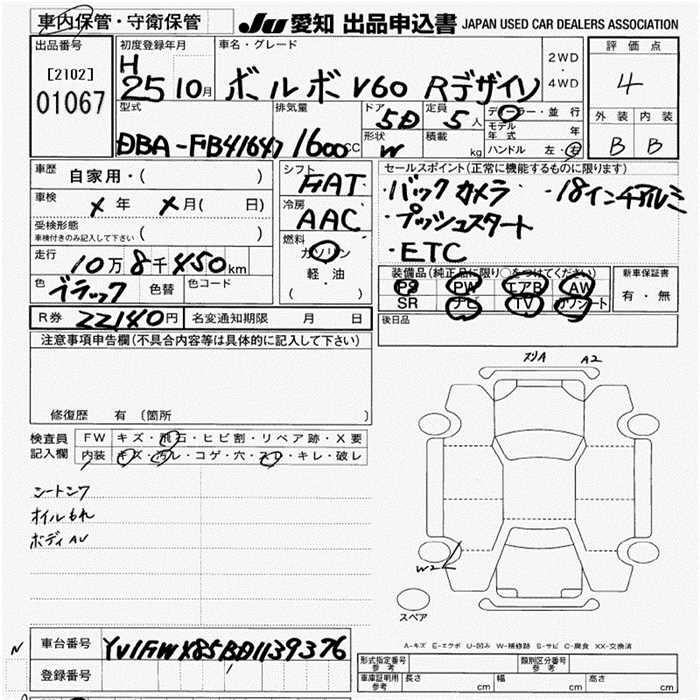 車内保管・守衛保管
JU 愛知 出品申込書 JAPAN USED CAR DEALERS ASSOCIATION
出品番号
[2102]
01067
初度登録年月
H
25 10月
車名・グレード
ボルボ V60 Rデザイン
2WD
・
4WD
評価点
4
外装 内装
B B
型式
DBA-FB4164T
排気量
1600 CC
ドア
5D
形状
W
定員
5人
積載
kg
ディーラー・並行
モデル年式 年
ハンドル 左・右
車歴
自家用・( )
車検
× 年 × 月( 日)
受検形態
車検付きのみ記入して下さい ( )
走行
10万 8千 450km
色
ブラック
色替
色コード
シフト
FAT
冷房
AAC
燃料
ガソリン
軽・油
( )
セールスポイント(正常に機能するものに限ります)
・バックカメラ ・18インチアルミ
・プッシュスタート
・ETC
装備品(純正品に限り〇をつけてください)
PS PW エアB AW
SR ナビ TV カワシート
新車保証書
有・無
後日品
R券 22140円 名変通知期限 月 日
注意事項申告欄(不具合内容等は具体的に記入して下さい)
修復歴 有 (箇所 )
検査員
記入欄
FW キズ・飛石・ヒビ割・リペア跡・X要
内装 キズ・汚レ・コゲ・穴・スレ・キレ・破レ
シートシワ
オイルもれ
ボディAU
スリA A2
W2
スペア
A-キズ E-エクボ U-凹み W-補修跡 S-サビ C-腐食 XX-交換済
車台番号 YV1FWX85BD1139376
登録番号
形式指定番号
参考
類別区分番号
参考
車庫証明用
参考
長さ cm 幅 cm 高さ cm
N